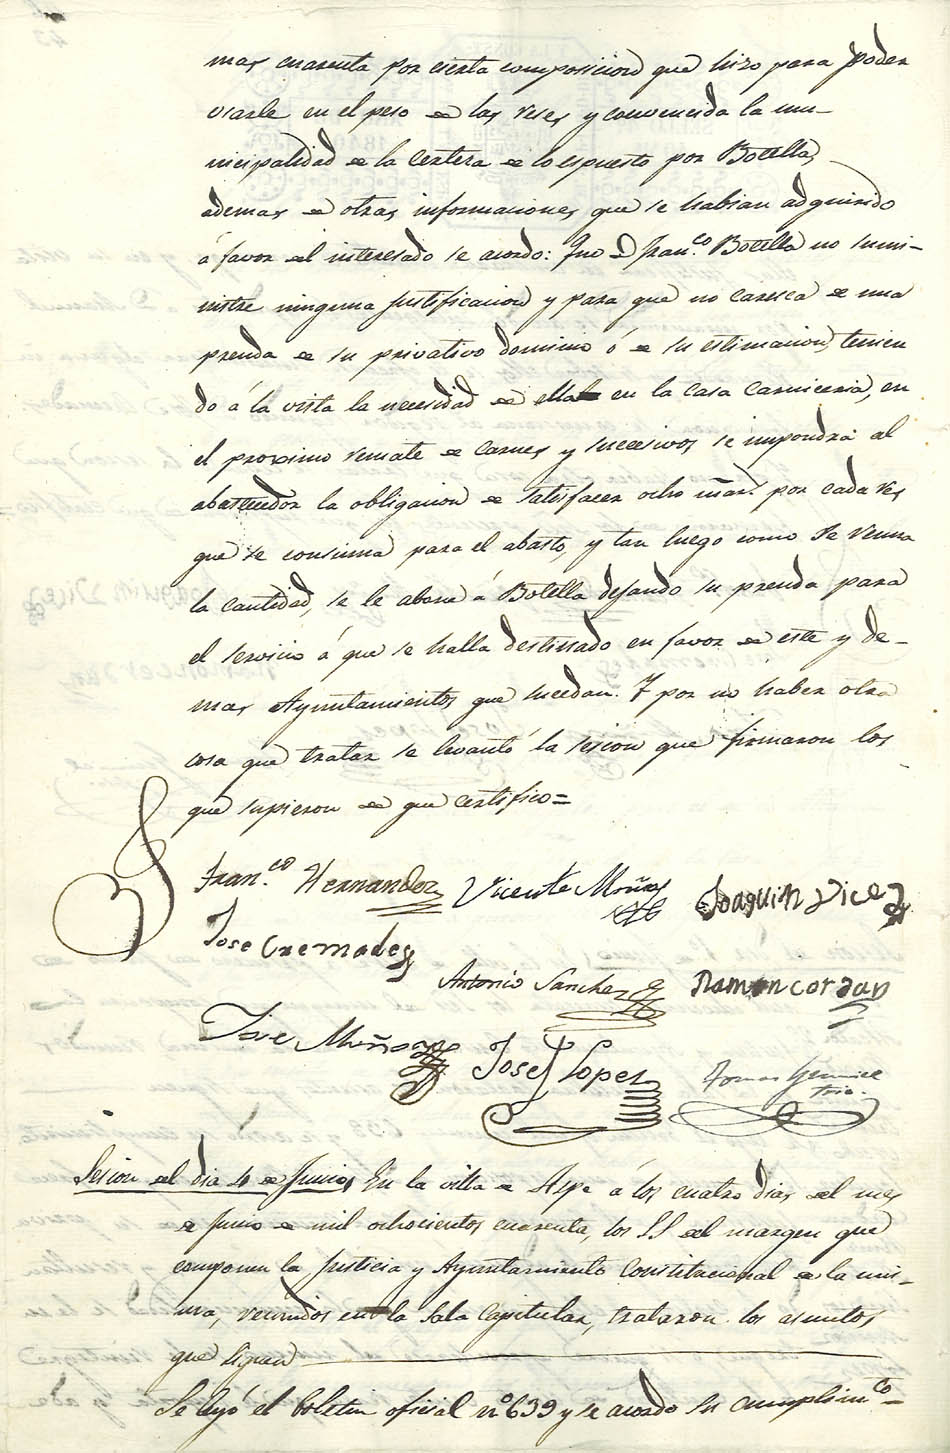 mas cuarenta por cierta composicion que hizo para poder
usarle en el peso de las reses y convencida la mu-
nicipalidad de la certeza de lo espuesto por Botella,
ademas de otras informaciones que se habian adquirido
á favor del interesado se acordo: Que D. Fran.co Botella no sumi-
nistre ninguna justificacion y para que no caresca de una
prenda de su privativo dominio ó de su estimacion, tenien
do á la vista la necesidad de ella en la casa carniceria, en
el proximo remate de carnes y sucesivos se impondrá al
abastecedor la obligacion de satisfacer ocho mar.s por cada res
que se consuma para el abasto, y tan luego como se reuna
la cantidad, se le abone á Botella dejando su prenda para
el servicio á que se halla destinado en favor de este y de-
mas Ayuntamientos que sucedan. Y por no haber otra
cosa que tratar se levantó la sesion que firmaron los
que supieron de que certifico=
Fran.co Hernandez Vicente Muñoz Joaquin Vicedo
Jose Cremades
Antonio Sanchez Ramon cordan
Jose Muñoz Jose Lopez Tomas
Srio.
Sesion del dia 4 de Junio, En la villa de Aspe á los cuatro dias del mes
de Junio de mil ochocientos cuarenta, los SS del margen que
componen la Justicia y Ayuntamiento Constitucional de la mis-
ma, reunidos en la Sala Capitular, trataron los asuntos
que siguen
Se leyó el boletin oficial nº 639 y se acordo su cumplim.to-